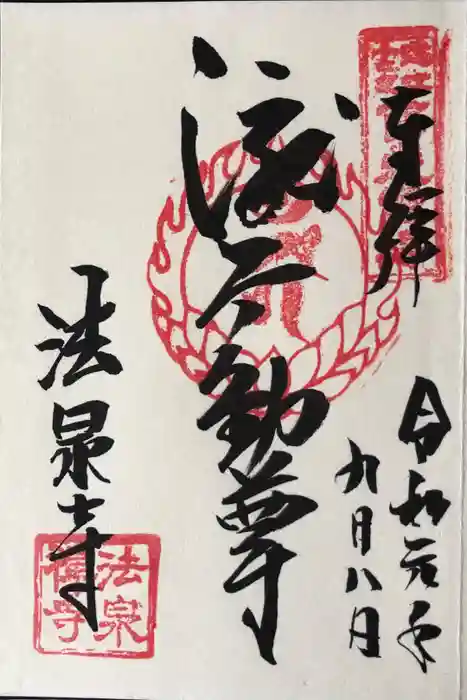 奉拝
令和元年
九月八月
波不動尊
法泉寺
法泉
禅寺